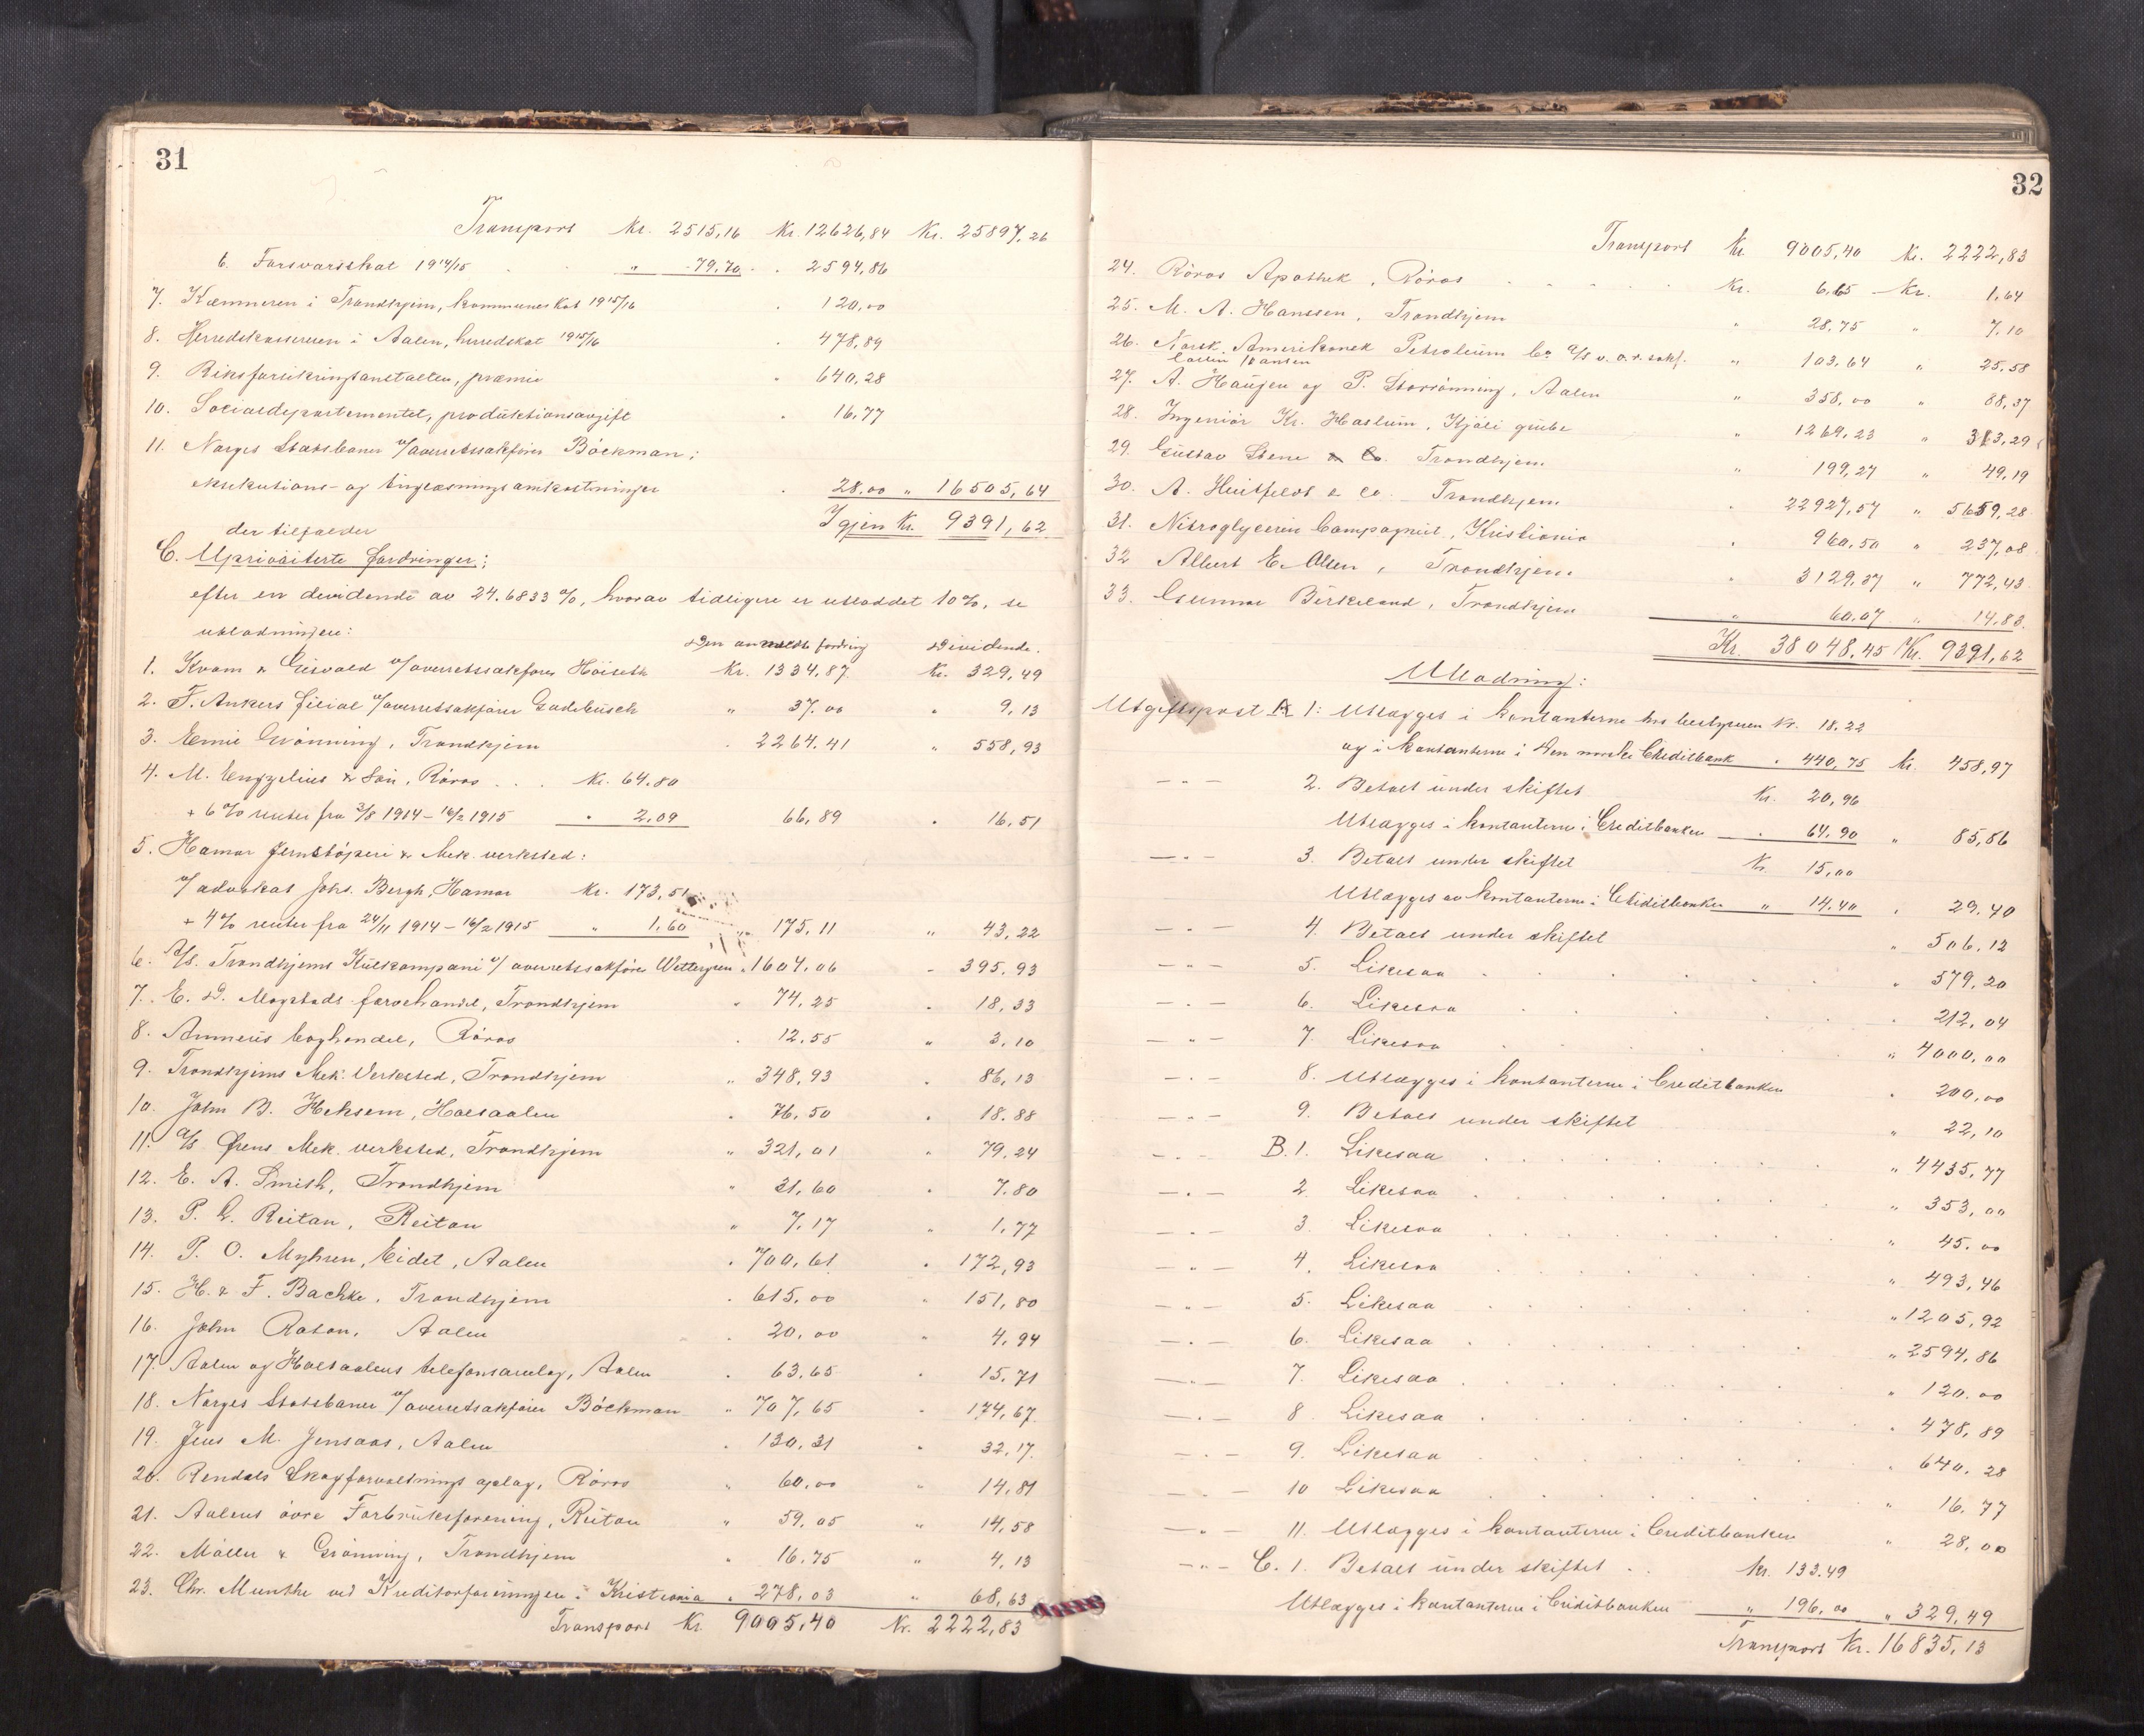 31
Transport Kr. 2515,16 Kr. 12626,84 Kr. 25897,26
6. Forsvarsskat 1914/15 " 79,70 . 2594,86
7. Kæmneren i Trondhjem, kommuneskat 1915/16 . 120,00
8. Herredskassereren i Aalen, herredskat 1915/16 . 478,89
9. Riksforsikringsanstalten, præmie . 640,28
10. Socialdepartementet, produktionsavgift . 16,77
11. Norges Statsbaner v/ overretssakfører Böckman:
eksekutions- og tinglæsningsomkostninger . 28,00 " 16505,64
Igjen Kr. 9391,62
der tilfalder
C. Uprioriterte fordringer:
efter en devidende av 24.6833 %, hvorav tidligere er utloddet 10%, se
utlodningen:
Den anmeldte fordring Dividende.
1. Kvam & Eisvald v/ overretssakfører Höiseth Kr. 1334,87 Kr. 329,49
2. F. Ankers filial v/ overretssakfører Gadebusch " 37.00 " 9,13
3. Emic Grönning, Trondhjem . 2264.41 " 558,93
4. M. Engzelius & Sön, Röros . . . Kr. 64.80
+ 6 % renter fra 3/8 1914 - 16/2 1915 " 2,09 66,89 . 16,51
5. Hamar Jernstöperi & Mek. verksted:
v/ advokat Johs. Bergh, Hamar Kr. 173,51
+ 4% renter fra 24/11 1914 - 16/2 1915 " 1,60 " 175,11 " 43,22
6. A/S. Trondhjems Kulkompani v/ overretssakfører Wettergren . 1604,06 - 395,93
7. E. D. Mogstads farvehandel, Trondhjem " 74,25 . 18,33
8. Amneus boghandel, Röros . 12,55 " 3,10
9. Trondhjems Mek. Verksted, Trondhjem " 348,93 . 86,13
10. John B. Heksem, Holtaalen . 76,50 . 18.88
11. A/S Ørens Mek. verksted, Trondhjem " 321,01 " 79,24
12. E. A. Smith, Trondhjem " 31,60 . 7.80
13. P. L. Reitan, Reitan " 7,17 " 1,77
14. P. O. Myhren, Eidet, Aalen . 700,61 . 172,93
15. H. & F. Bachke, Trondhjem . 615,00 " 151,80
16. John Raton, Aalen . 20,00 " 4,94
17. Aalen og Holtaalens telefonsamlag, Aalen . 63,65 . 15,71
18. Norges Statsbaner v/ overretssakfører Böckman " 707,65 " 174,67
19. Jens M. Jensaas, Aalen . 130,31 . 32,17.
20. Rendals Skogforvaltnings oplag, Röros " 60,00 " 14,81
21. Aalens övre Forbruksforening, Reitan " 59,05 " 14,58
22. Möller & Grönning, Trondhjem " 16,75 " 4,13
23. Chr. Munthe ved Kreditorforeningen i Kristiania . 278,03 " 68,63
Transport Kr. 9005,40 Kr. 2222,83
32
Transport Kr. 9005,40 Kr. 2222,83
24. Röros Apothek, Röros . . . . . Kr. 6,65 Kr. 1,64
25. M. A. Hanssen, Trondhjem " 28,75 " 7,10
26. Norsk Amerikansk Petroleum Co A/S v. o.r. sakf. " 103,64 " 25.58
27. A. Haugen og P. Storrönning, Aalen " 358,00 " 88,37
28. Ingeniör Kr. Haslum, Kjöli grube " 1269,23 " 313,29
29. Gustav Stene & Co. Trondhjem " 199,27 " 49,19
30. A. Huitfeldt & Co. Trondhjem . 22927,57 " 5659,28
31. Nitroglycerin Compagniet, Kristiania . 960,50 " 237,08
32 Albert E. Olsen, Trondhjem. " 3129,37 " 772,43
33. Gunnar Birkeland, Trondhjem " 60,07 " 14,83.
Kr. 38048,45 Kr. 9391,62
Utlodning:
Utgiftspost A 1: Utlægges i kontanterne hos bestyreren Kr. 18.22
og i kontanterne i Den norske Creditbank . 440,75 Kr. 458,97
- " - 2. Betalt under skiftet Kr. 20,96
Utlægges i kontanterne i Creditbanken . 64.90 " 85,86
- " - 3. Betalt under skiftet Kr. 15,00
Utlægges av kontanterne i Creditbanken " 14,40 . 29,40
- " - 4. Betalt under skiftet " 506,12
- " - 5. Likesaa . . . . " 579,20
- " - 6. Likesaa . . . . 212,04
- " - 7. Likesaa . . . . " 4000,00
- " - 8. Utlægges i kontanterne i Creditbanken . 200,00
- " - 9. Betalt under skiftet " 22,10
- " - B. 1. Likesaa . . . . " 4435,77
- " - 2. Likesaa . . . . " 353,00
- " - 3. Likesaa . . . . " 45.00
- " - 4. Likesaa . . . . " 493,46
- " - 5. Likesaa . . . . " 1205,92
- " - 6. Likesaa . . . . " 2594,86
- " - 7. Likesaa . . . . " 120.00
- " - 8. Likesaa . . . . " 478,89
- " - 9. Likesaa . . . . " 640,28
- " - 10 Likesaa . . . . " 16,77
- " - 11. Utlægges i kontanterne i Creditbanken " 28,00
- " - C. 1. Betalt under skiftet . . Kr. 133.49
Utlægges i kontanterne i Creditbanken " 196,00 " 329,49
Transport Kr. 16835,13